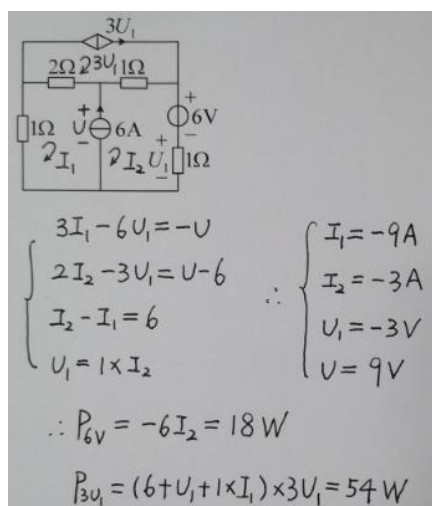 3U₁
2Ω 3U₁ 1Ω
+
1Ω U 6A 6V
-
I₁ I₂ U₁ 1Ω
3I₁-6U₁=-U
2I₂-3U₁=U-6
I₂-I₁=6
U₁=1×I₂
∴ I₁=-9A
I₂=-3A
U₁=-3V
U=9V
∴ P₆ᵥ=-6I₂=18W
P₃ᵤ₁=(6+U₁+1×I₁)×3U₁=54W